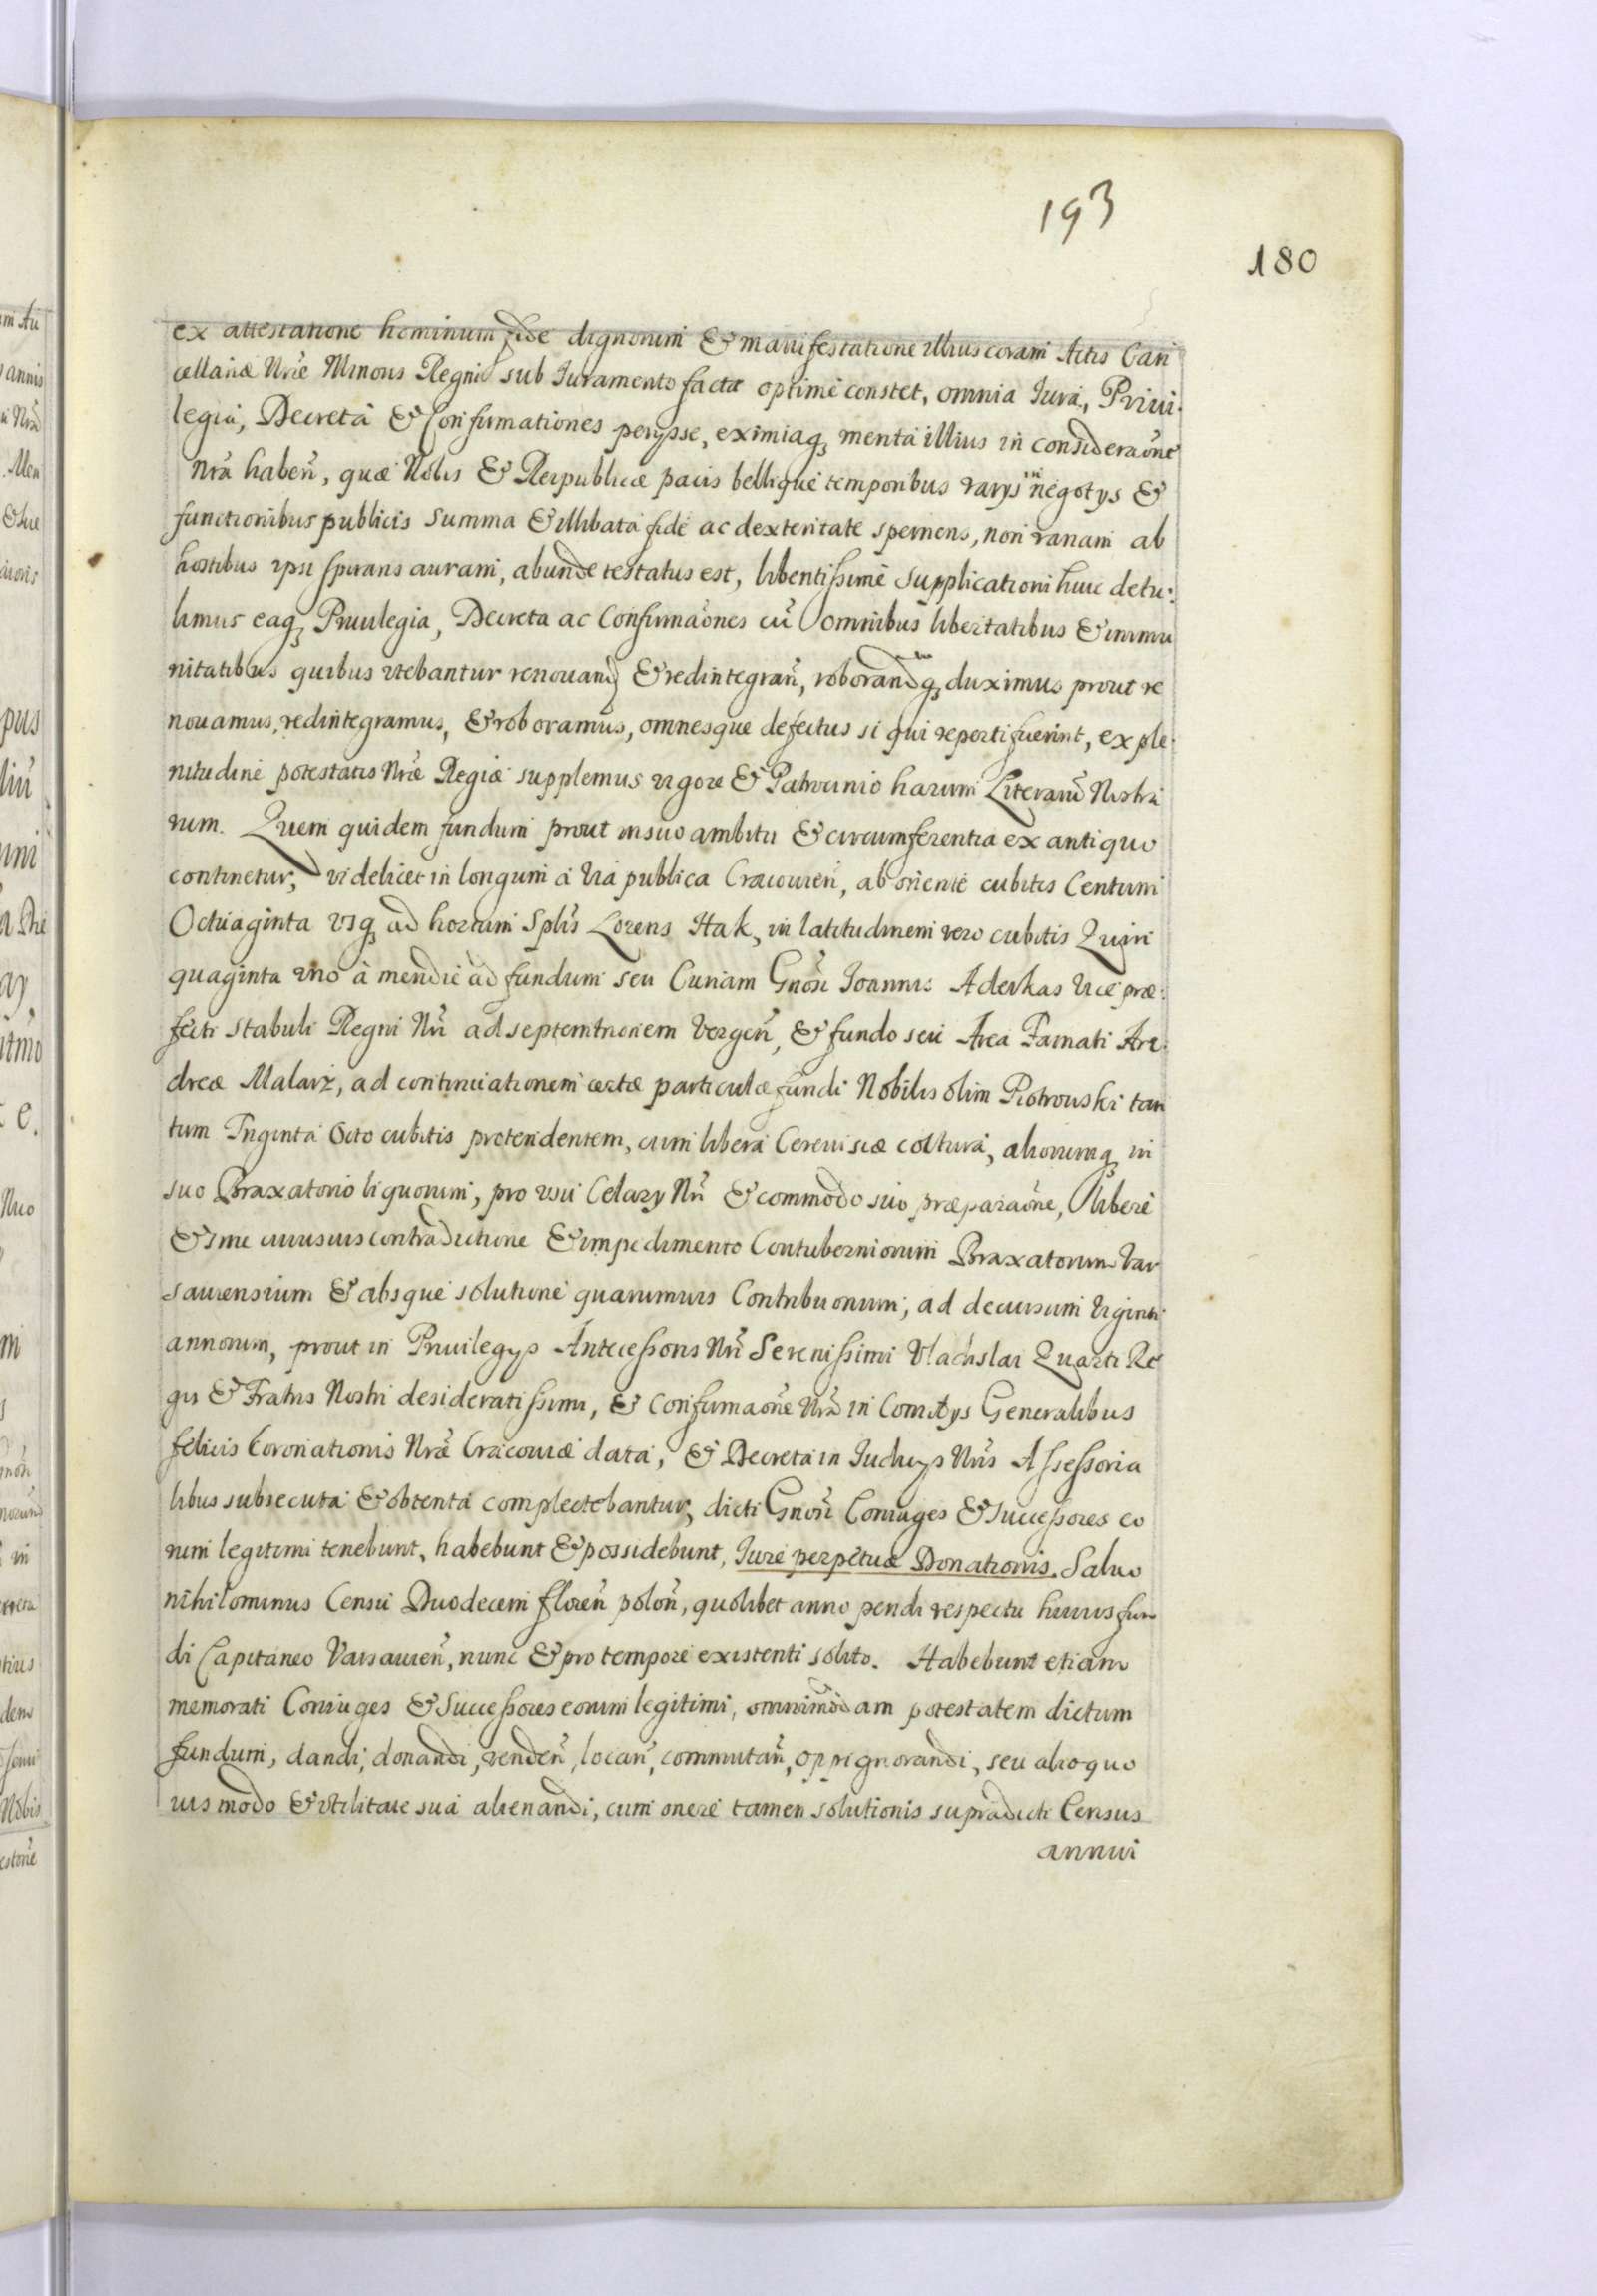 193
180
ex attestatione hominum fide dignorum & manifestatione illius coram Actis Can
cellariæ Nræ Minoris Regni sub Iuramento factæ optimè constet, omnia Iura, Priui-
legia, Decreta & Confirmationes perysse, eximiaq; merita illius in consideraõne
Nra haben̄, quæ Nobis & Reipublicæ pacis bellique temporibus varys in negotys &
functionibus publicis summa & illibata fide ac dexteritate spernens, non vanam ab
hostibus ipsi spirans auram, abunde testatus est, libentissimè supplicationi huic detu-
limus eaq; Priuilegia, Decreta ac Confirmaõnes cũ omnibus libertatibus & immu
nitatibus quibus vtebantur renouan̄ & redintegran̄, roborandq; duximus prout re
nouamus, redintegramus, & roboramus, omnesque defectus si qui reperti fuerint, ex ple-
nitudine potestatis Nræ Regiæ supplemus vigore & Patrocinio harum Literarũ Nostra
rum. Quem quidem fundum prout in suo ambitu & circumferentia ex antiquo
continetur, videlicet in longum à via publica Cracouien̄, ab oriente cubitis Centum
Octuaginta vsq; ad hortum Splis Lorens Hak, in latitudinem vero cubitis Quin
quaginta vno à meridie ad fundum seu Curiam Gnosi Ioannis Aderkas Vice præ-
fecti stabuli Regni Nri ad septemtrionem vergen̄, & fundo seu Area Famati An-
dreæ Malarz, ad continuationem certæ particulæ fundi Nobilis olim Piotrouski tan
tum Triginta Octo cubitis protendentem, cum libera Cereuisiæ coctura, aliorumq; in
suo Braxatorio liquorum, pro vsu Celary Nri & commodo suo præparaõne, liberè
& sine cuiusuis contradictione & impedimento Contuberniorum Braxatorum Var
sauiensium & absque solutione quarumuis Contribuonum, ad decursum Viginti
annorum, prout in Priuilegys Antecessoris Nri Serenissimi Vladislai Quarti Re
gis & Fratris Nostri desideratissimi, & confirmaõne Nra in Comitys Generalibus
felicis Coronationis Nræ Cracouiæ data, & Decreta in Iudicys Nris Assessoria
libus subsecuta & obtenta complectebantur, dicti Gnosi Coniuges & Successores eo
rum legitimi tenebunt, habebunt & possidebunt, Iure perpetuæ Donationis. Saluo
nihilominus Censu Duodecem floren̄ polon̄, quolibet anno pendi respectu huius fun
di Capitaneo Varsauien̄, nunc & pro tempore existenti solito. Habebunt etiam
memorati Coniuges & Successores eorum legitimi, omnimodam potestatem dictum
fundum, dandi, donandi, venden̄, locan̄, commutan̄, oppignorandi, seu alio quo
uis modo & vtilitate sua alienandi, cum onere tamen solutionis supradicti Census
annui